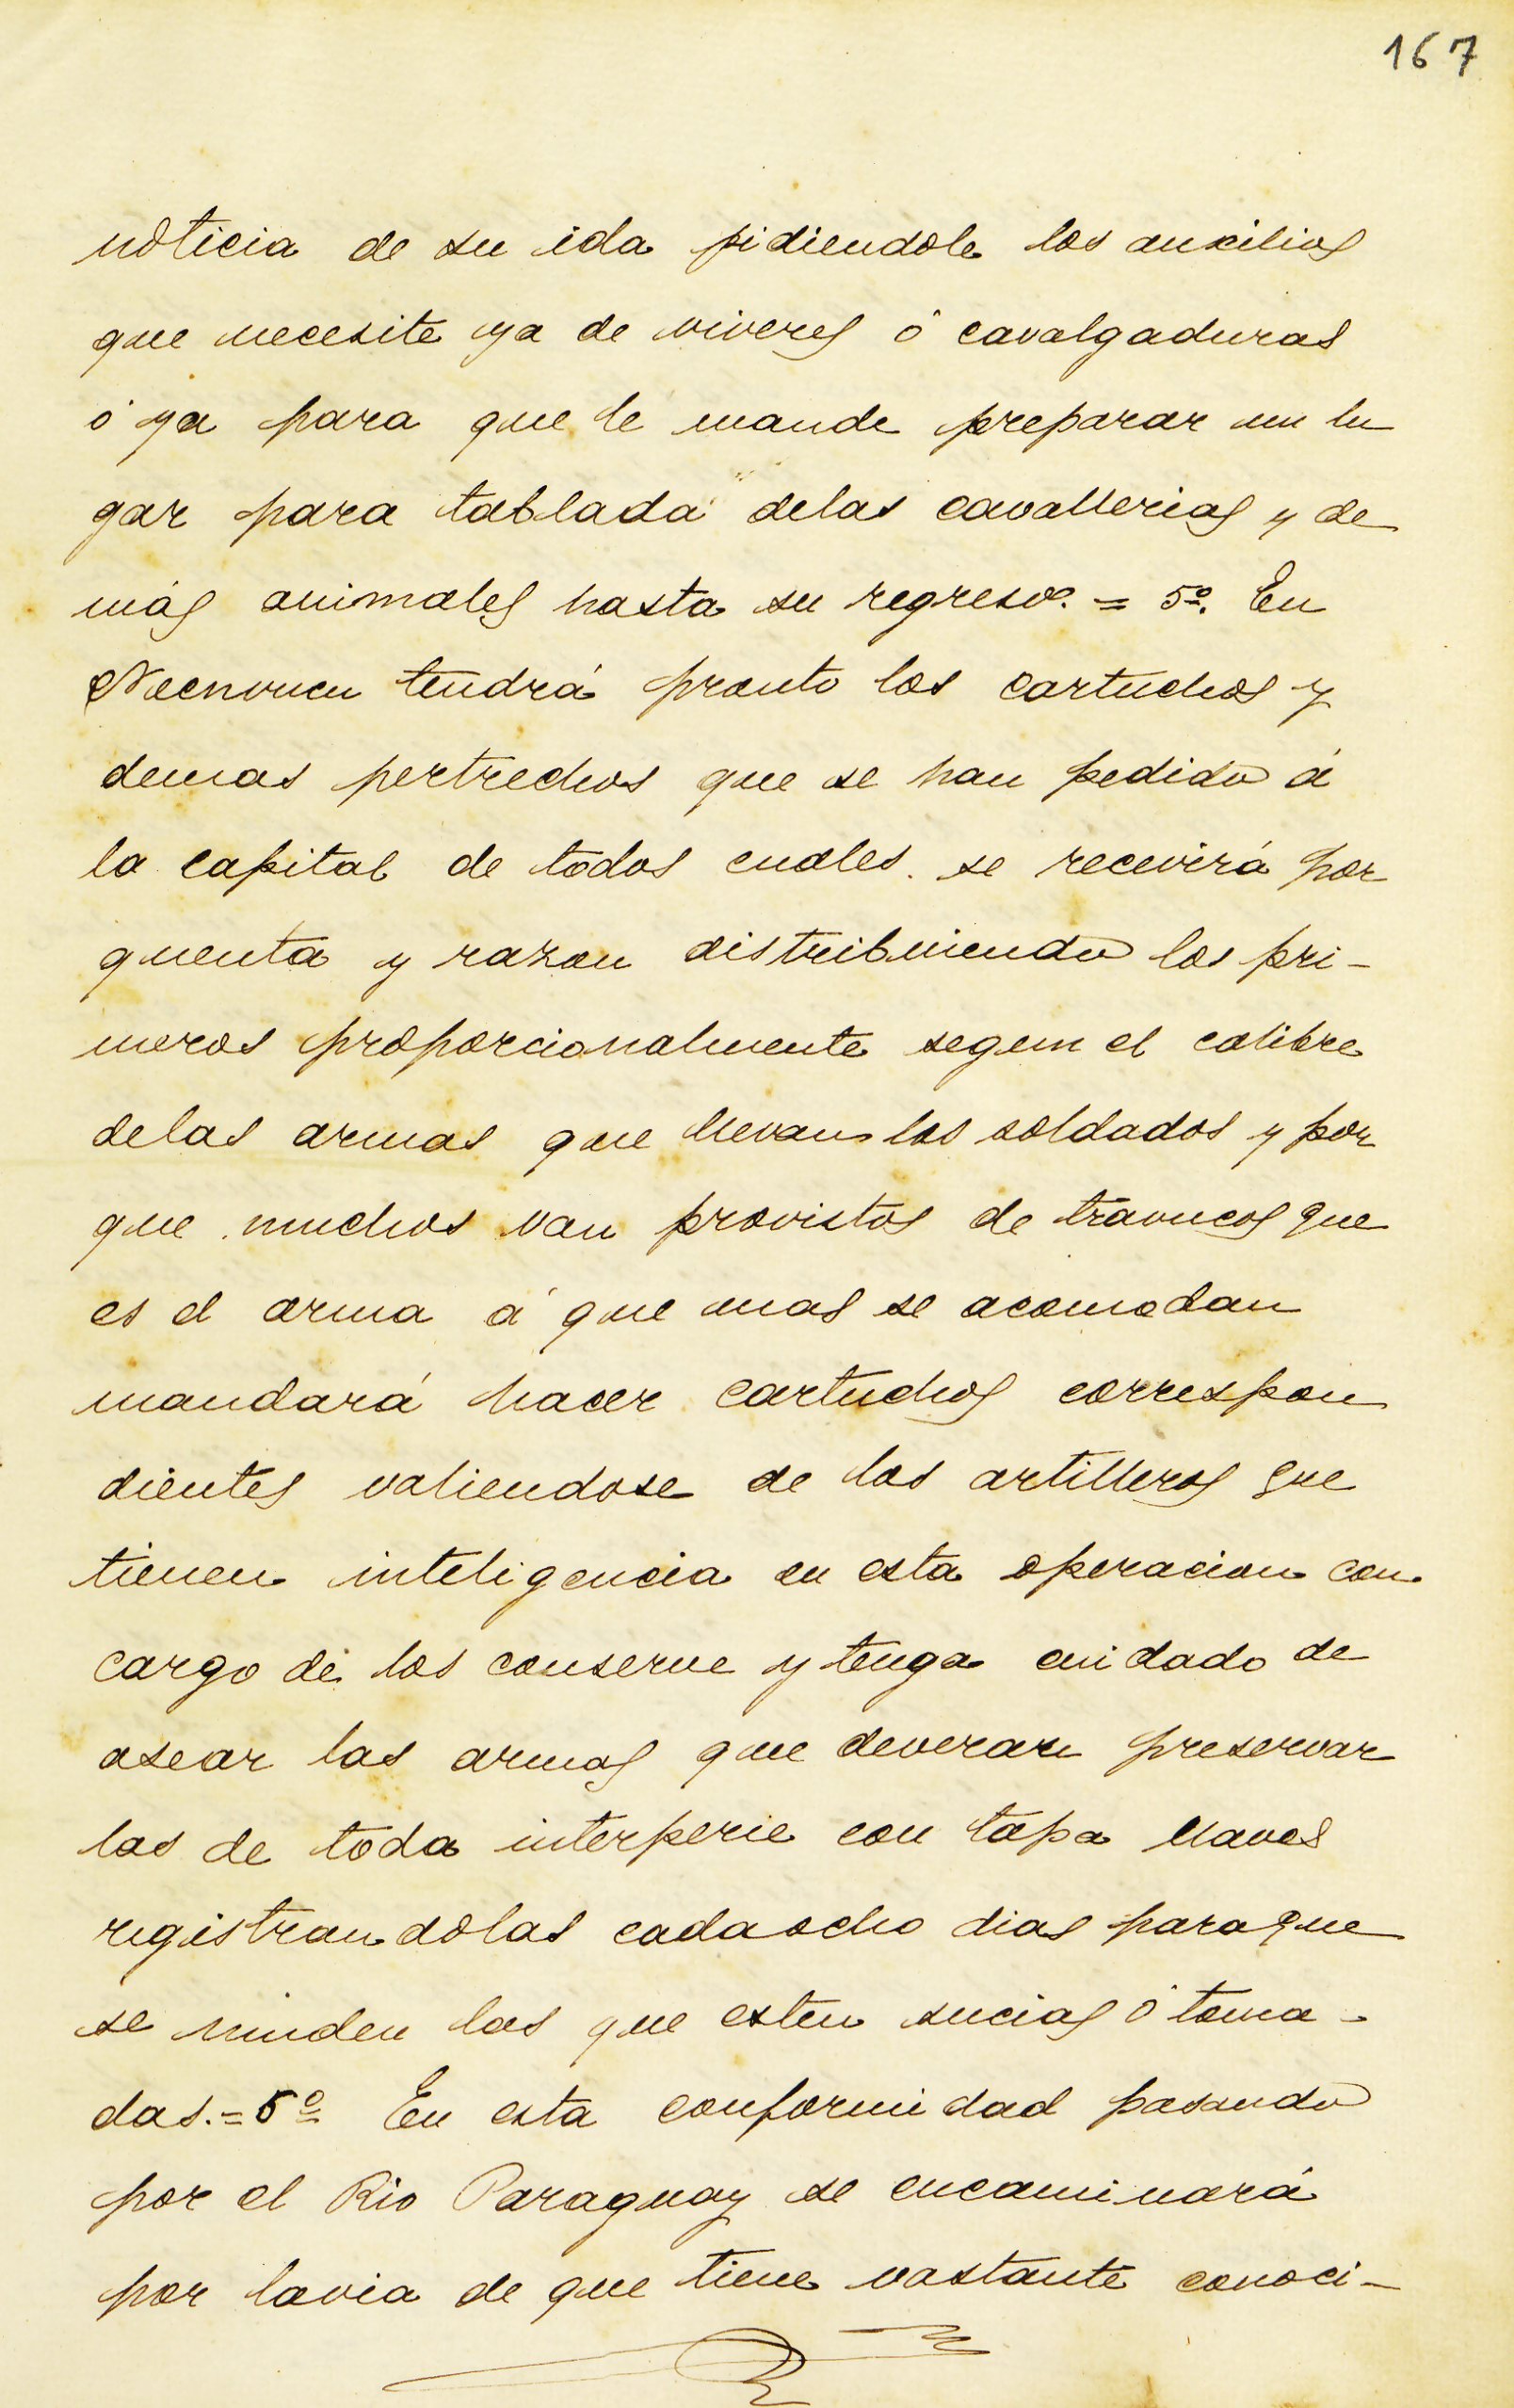 167
noticia de su ida pidiendole los auxilios
que necesite ya de viveres ó cavalgaduras
ó ya para que le mande preparar un lu
gar para tablada delas cavallerias y de
más animales hasta su regreso. = 5º. En
tendrá pronto los cartuchos y
demas pertrechos que se han pedido á
la capital de todos cuales se recevirá por
quenta y razon distribuiendo los pri-
meros proporcionalmente segun el calibre
delas armas que llevan los soldados y por
que muchos van provistos de travucos que
es el arma á que mas se acomodan
mandará hacer cartuchos correspon
dientes valiendose de los artilleros que
tienen inteligencia en esta operacion con
cargo de los conserve y tenga cuidado de
asear las armas que deveran preservar
las de toda interperie con tapa llaves
registrandolas cada ocho dias paraque
se las que esten sucias ó toma-
das. = 6º En esta conformidad pasando
por el Rio Paraguay se encaminará
por lavia de que tiene vastante conoci-